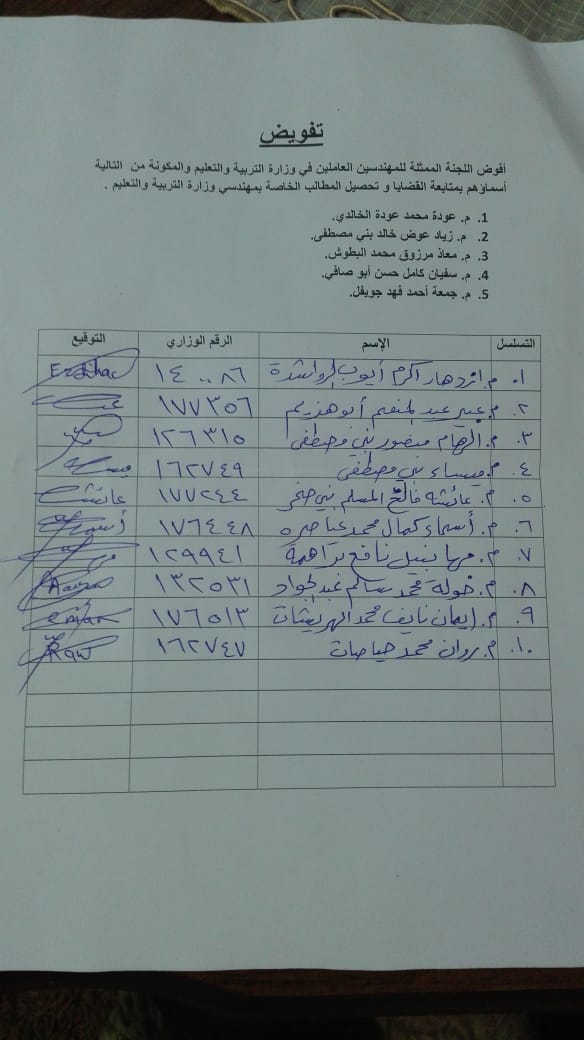 تفويض
أفوض اللجنة الممثلة للمهندسين العاملين في وزارة التربية والتعليم والمكونة من التالية
أسماؤهم بمتابعة القضايا و تحصيل المطالب الخاصة بمهندسي وزارة التربية والتعليم .
1. م. عودة محمد عودة الخالدي.
2. م. زياد عوض خالد بني مصطفى.
3. م. معاذ مرزوق محمد البطوش.
4. م. سفيان كامل حسن أبو صافي.
5. م. جمعة أحمد فهد جويفل.
التسلسل الإسم الرقم الوزاري التوقيع
١. م. ازدهار اكرم أيوب الرواشدة ١٤٠٠٨٦
٢. م. عبير عبد المنعم أبو هزيم ١٧٧٣٥٦
٣. م. الهام منصور بني مصطفى ١٢٦٣١٥
٤. م. ميساء بني مصطفى ١٦٢٧٤٩
٥. م. عائشة فالح المسلم بني صخر ١٧٧٢٤٤ عائشة
٦. م. أسماء كمال محمد عناصره ١٧٦٤٤٨ أسماء
٧. م. مها نبيل نافع براهمة ١٢٩٩٤١
٨. م. خولة محمد سالم عبد الجواد ١٣٢٥٣١
٩. م. إيمان نايف محمد ١٧٦٥١٣ eman
١٠. م. روان محمد حياصات ١٦٢٧٤٧